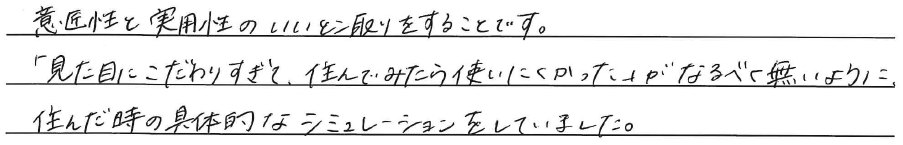 意匠性と実用性のいいとこ取りをすることです。
「見た目にこだわりすぎて、住んでみたら使いにくかった」がなるべく無いように、
住んだ時の具体的なシミュレーションをしていました。